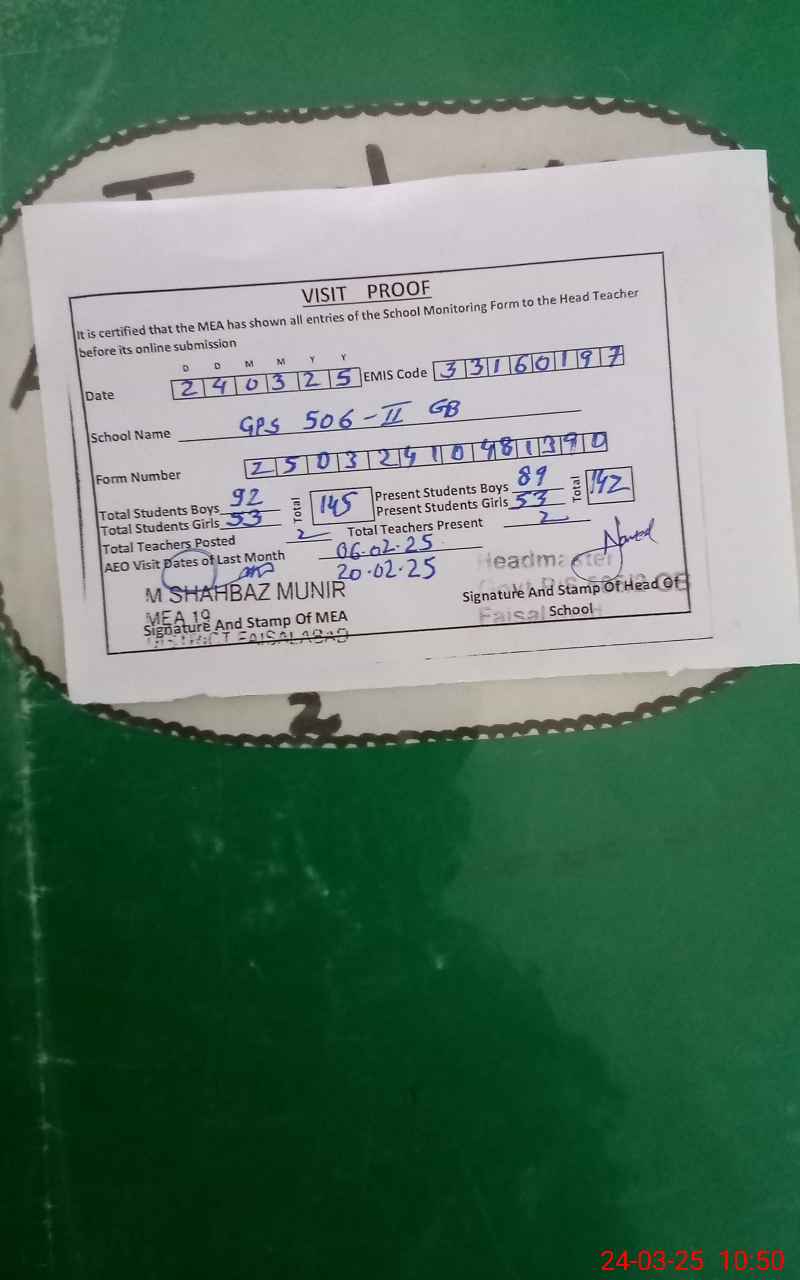 VISIT PROOF
It is certified that the MEA has shown all entries of the School Monitoring Form to the Head Teacher
before its online submission
D D M M Y Y
Date 240325 EMIS Code 33160197
School Name GPS 506-II GB
Form Number 25032410481390
Total Students Boys 92 Present Students Boys 89
Total 145 Total 142
Total Students Girls 53 Present Students Girls 53
Total Teachers Posted 2 Total Teachers Present 2
AEO Visit Dates of Last Month 06.02.25
20.02.25
Headmaster
M SHAHBAZ MUNIR
MEA 19
Signature And Stamp Of MEA
DISTRICT FAISALABAD
Signature And Stamp Of Head Of
School
2
24-03-25 10:50